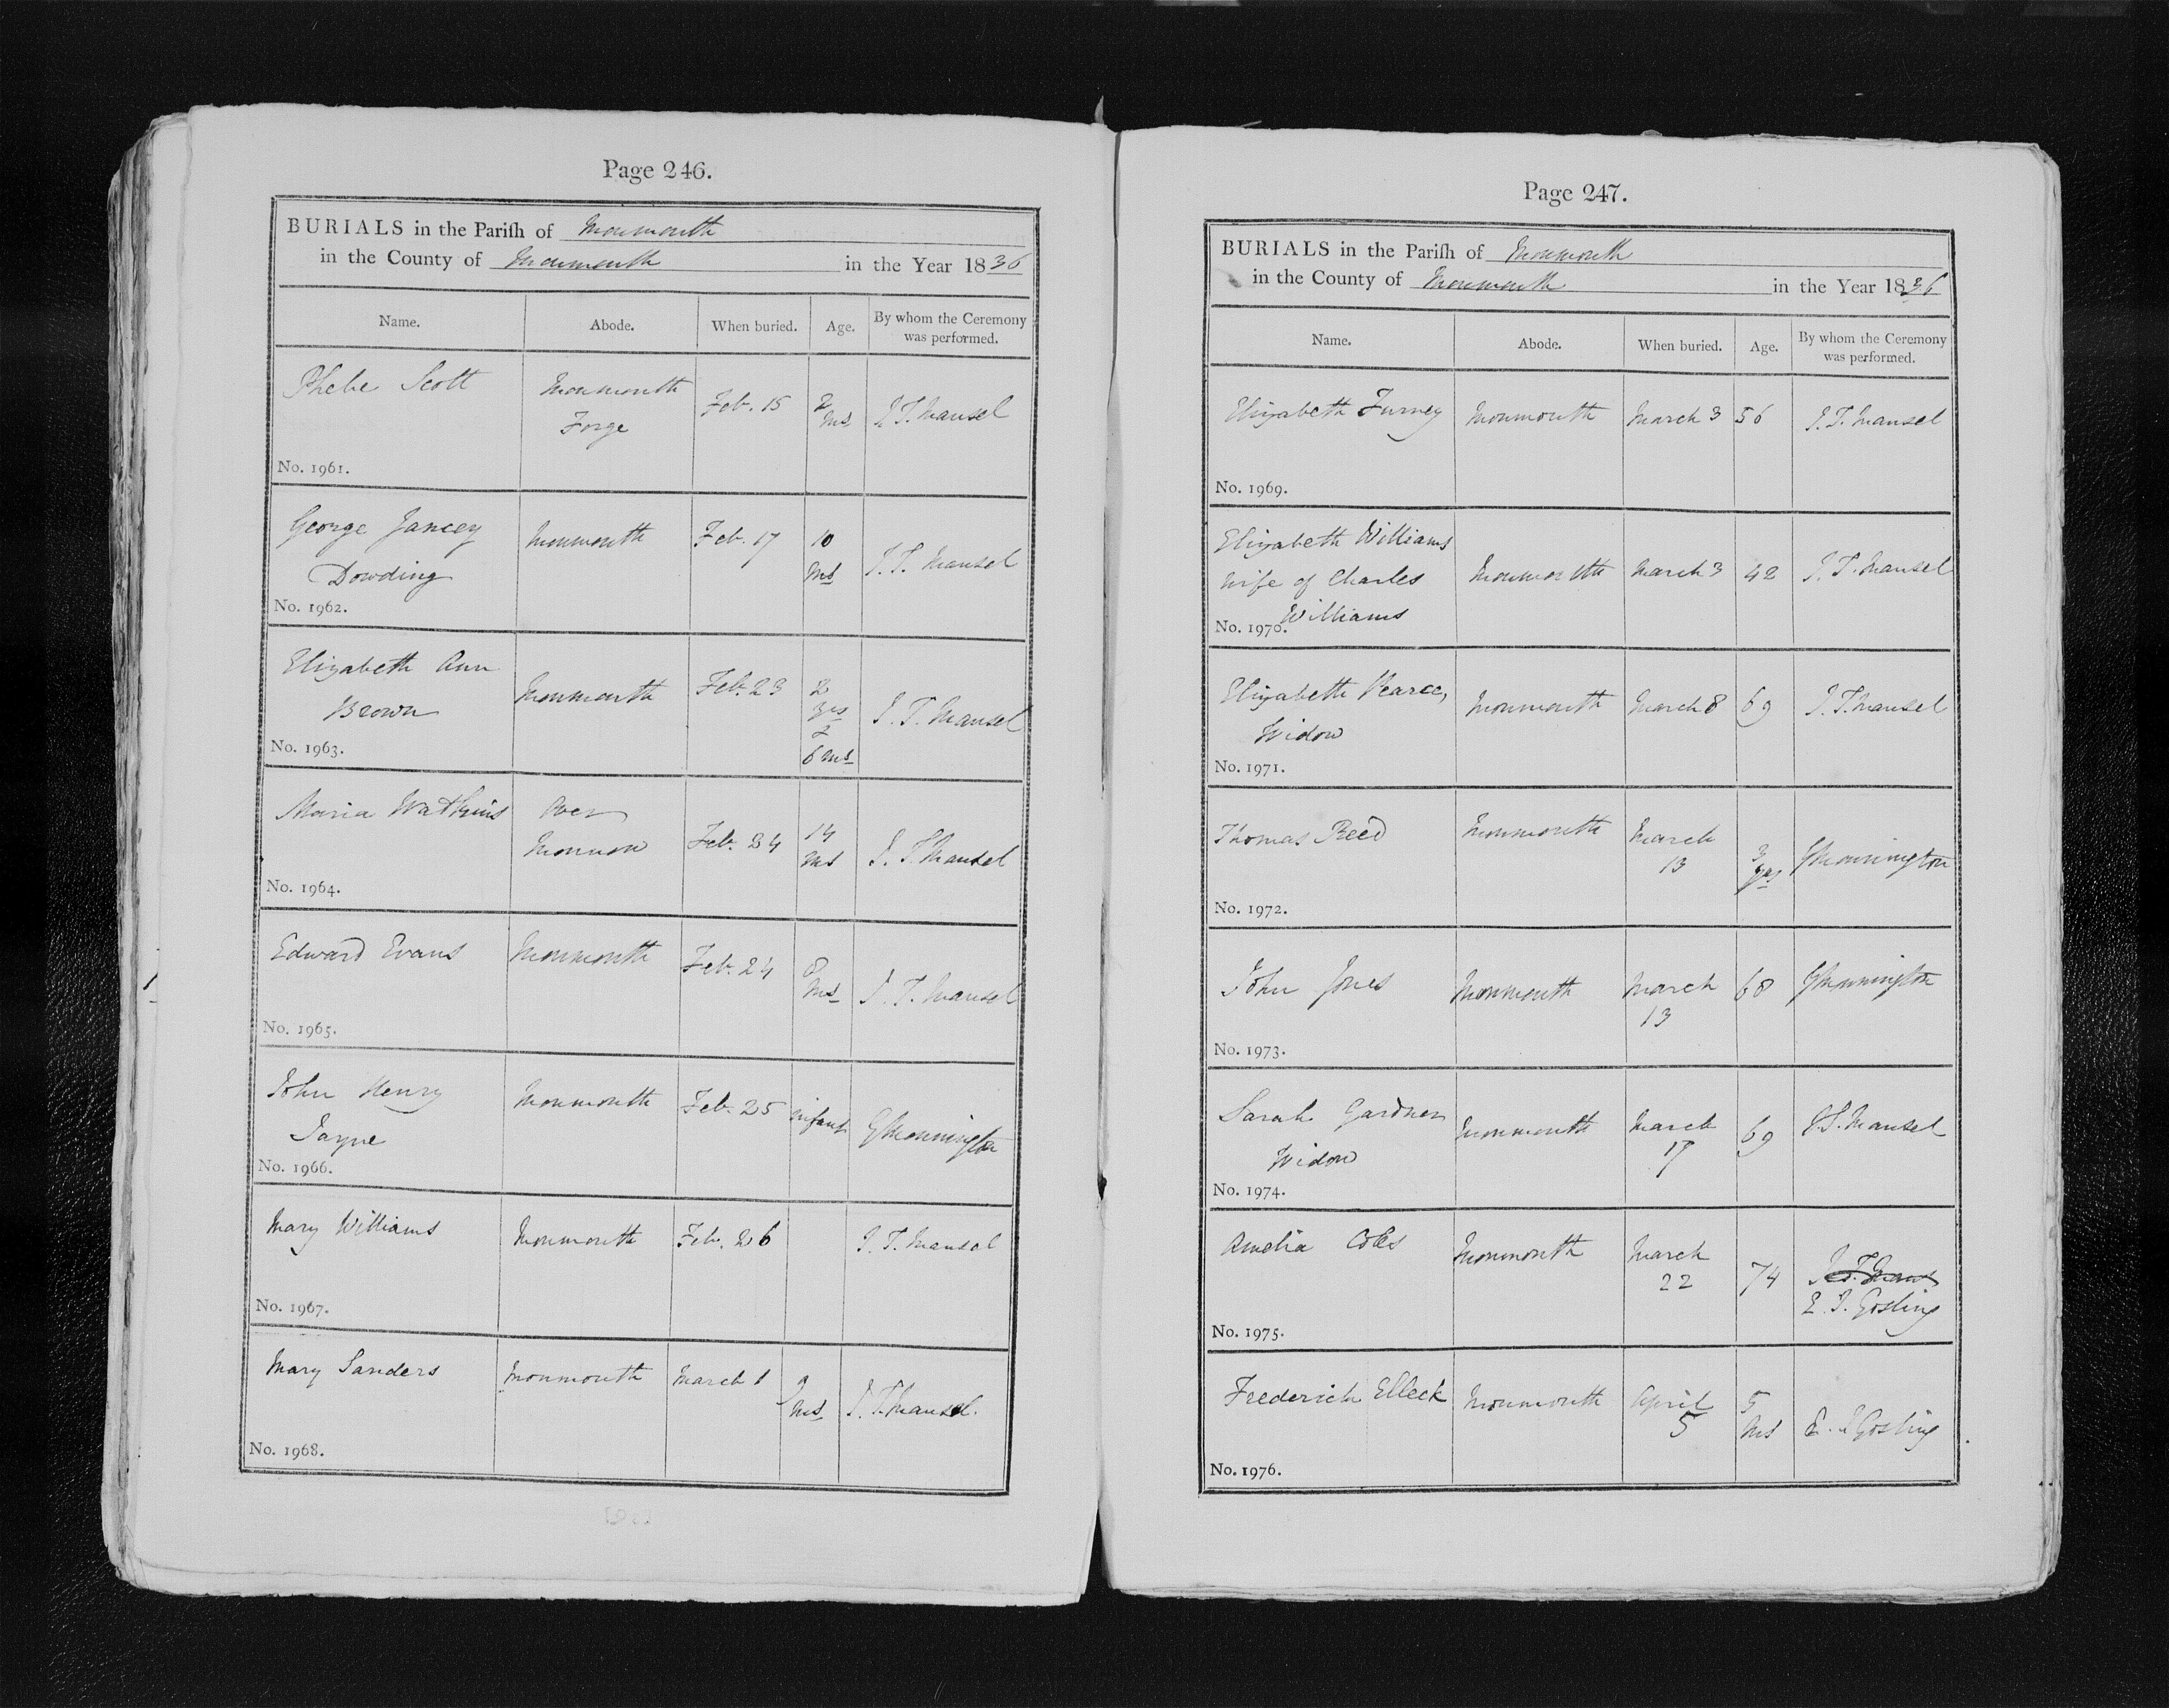 Page 246.
BURIALS in the Pariſh of Monmouth
in the County of Monmouth in the Year 1836
Name. Abode. When buried. Age. By whom the Ceremony was performed.
Phebe Scott Monmouth Forge Feb. 15 2 Ms J. T. Mansel
No. 1961.
George Jancey Dowding Monmouth Feb. 17 10 Ms J. T. Mansel
No. 1962.
Elizabeth Ann Brown Monmouth Feb. 23 2 yrs & 6 Ms J. T. Mansel
No. 1963.
Maria Watkins Over Monnow Feb. 24 14 Ms J. T. Mansel
No. 1964.
Edward Evans Monmouth Feb. 24 8 Ms J. T. Mansel
No. 1965.
John Henry Jayne Monmouth Feb. 25 infant G Monnington
No. 1966.
Mary Williams Monmouth Feb. 26 J. T. Mansel
No. 1967.
Mary Sanders Monmouth March 1 9 Ms J. T. Mansel.
No. 1968.
Page 247.
BURIALS in the Pariſh of Monmouth
in the County of Monmouth in the Year 1836
Name. Abode. When buried. Age. By whom the Ceremony was performed.
Elizabeth Furney Monmouth March 3 56 J. T. Mansel
No. 1969.
Elizabeth Williams wife of Charles Williams Monmouth March 3 42 J. T. Mansel
No. 1970.
Elizabeth Pearce, Widow Monmouth March 8 69 J. T. Mansel
No. 1971.
Thomas Reed Monmouth March 13 3 yrs G Monnington
No. 1972.
John Jones Monmouth March 13 68 G Monnington
No. 1973.
Sarah Gardner Widow Monmouth March 17 69 J. T. Mansel
No. 1974.
Amelia Coles Monmouth March 22 74 J. T. Mans E. J. Gosling
No. 1975.
Frederick Elleck Monmouth April 5 5 Ms E. J Gosling
No. 1976.